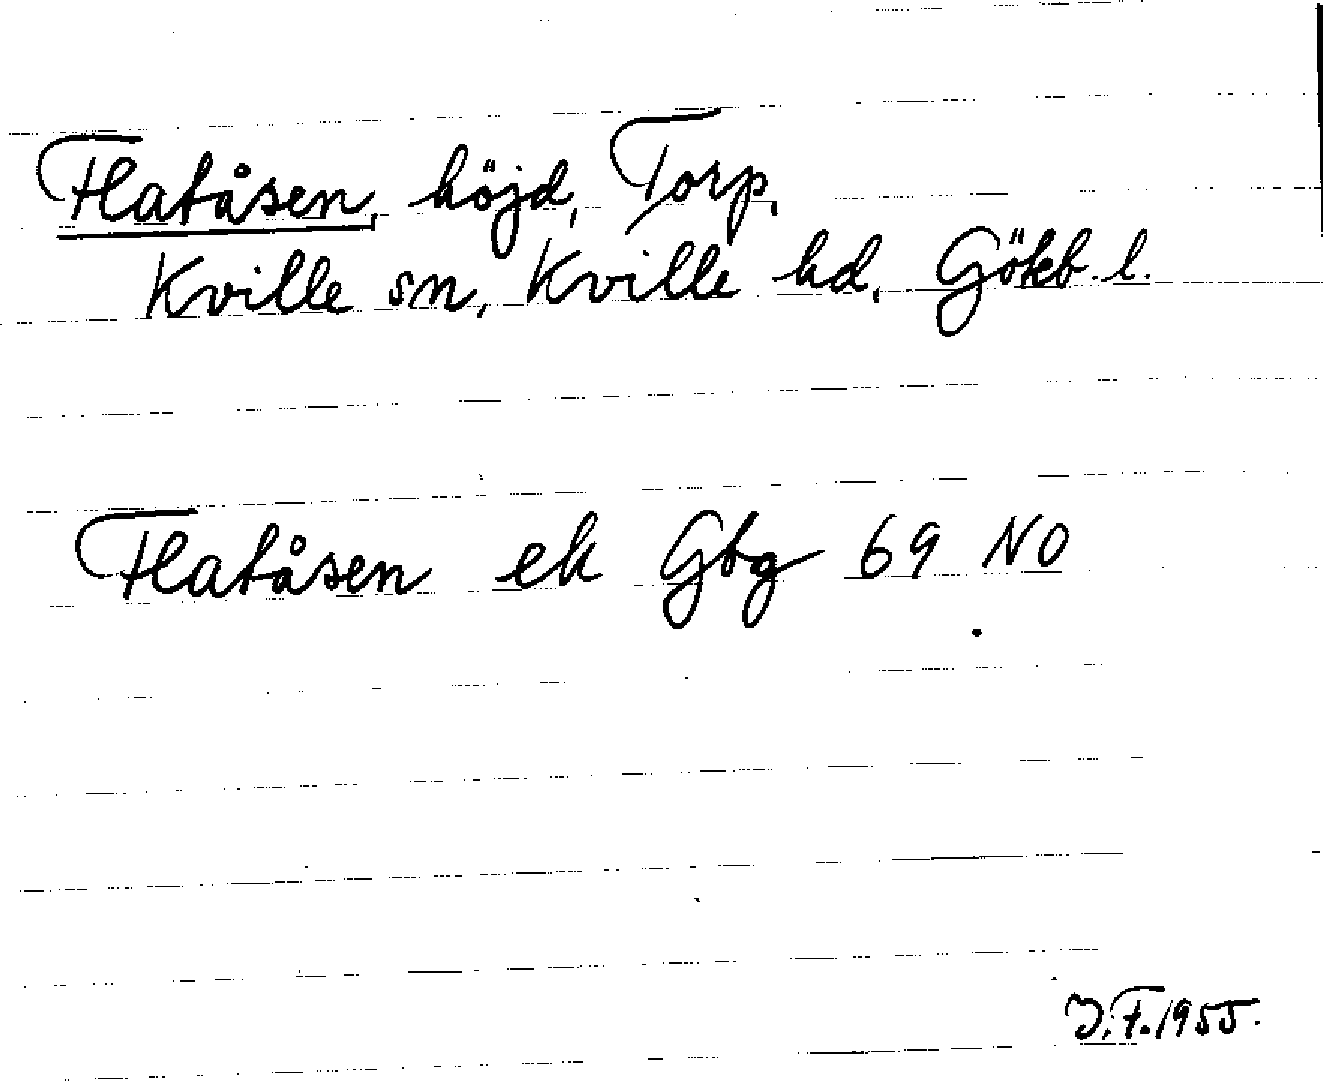 Flatåsen, höjd, Torp,
Kville sn, Kville hd, Gökb. l.
Flatåsen ek Gbg 69 NO
J.F. 1955.